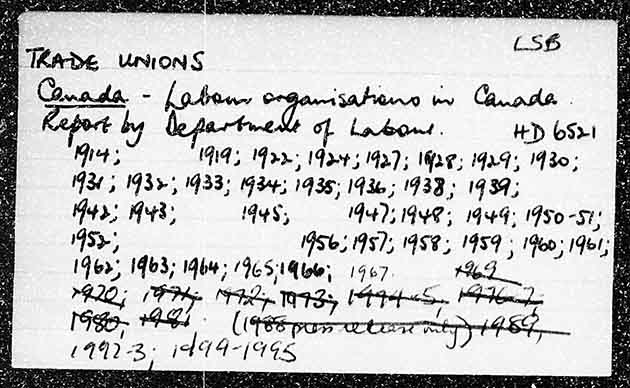 LSB
TRADE UNIONS
Canada - Labour organisations in Canada.
Report by Department of Labour. HD 6521
1914; 1919; 1922; 1924; 1927; 1928; 1929; 1930;
1931; 1932; 1933; 1934; 1935; 1936; 1938; 1939;
1942; 1943; 1945; 1947; 1948; 1949; 1950-51;
1952; 1956; 1957; 1958; 1959; 1960; 1961;
1962; 1963; 1964; 1965; 1966; 1967. 1969
1970; 1971; 1972; 1973; 1974-5, 1976-7,
1980, 1981. (1988 press release only) 1989,
1992-3; 1994-1995